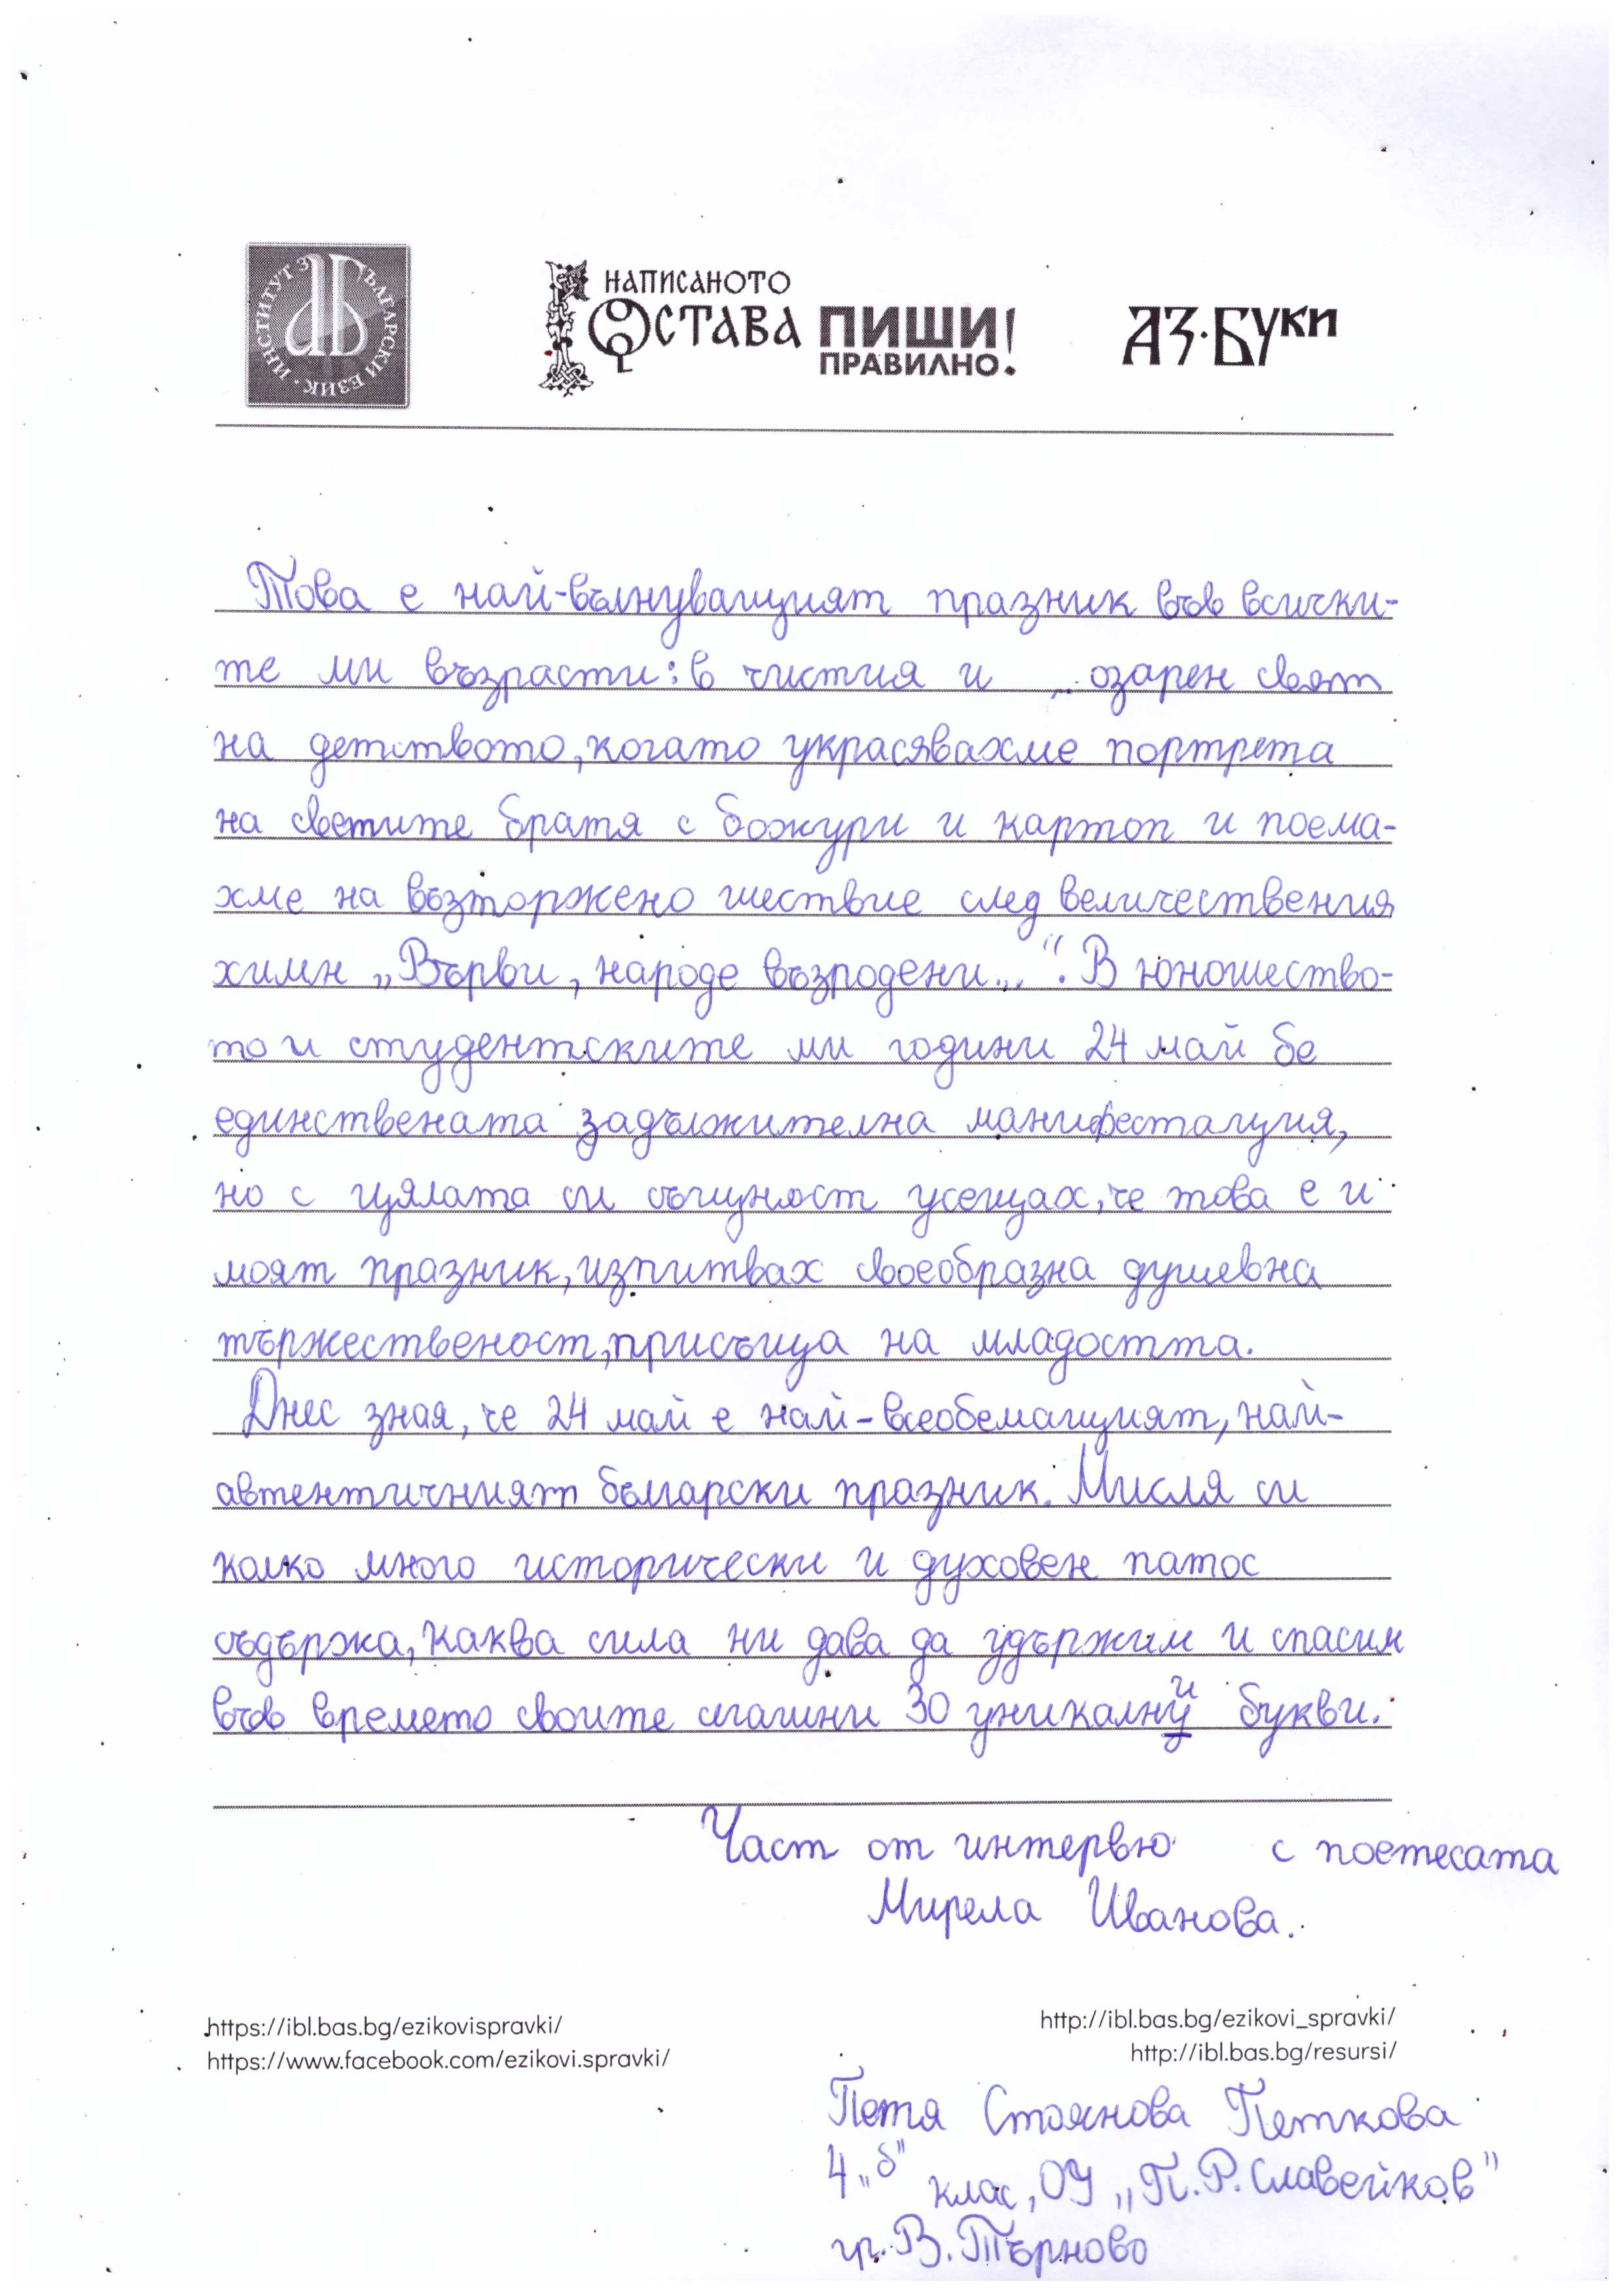 ИНСТИТУТ ЗА БЪЛГАРСКИ ЕЗИК
НАПИСАНОТО
ОСТАВА ПИШИ
ПРАВИЛНО!
АЗ·БУКИ
Това е най-вълнуващият празник във всички-
те ми възрасти: в чистия и озарен свят
на детството, когато украсявахме портрета
на светите братя с божури и картон и поема-
хме на възторжено шествие след величествения
химн „Върви, народе възродени...“. В юношество-
то и студентските ми години 24 май бе
единствената задължителна манифестация,
но с цялата си същност усещах, че това е и
моят празник, изпитвах своеобразна душевна
тържественост, присъща на младостта.
Днес зная, че 24 май е най-всеобемащият, най-
автентичният български празник. Мисля си
колко много исторически и духовен патос
съдържа, каква сила ни дава да удържим и спасим
във времето своите слагани 30 уникални букви.
Част от интервю с поетесата
Мирела Иванова.
https://ibl.bas.bg/ezikovispravki/
http://ibl.bas.bg/ezikovi_spravki/
https://www.facebook.com/ezikovi.spravki/
http://ibl.bas.bg/resursi/
Петя Стоянова Петкова
4 „б“ клас, ОУ „П. Р. Славейков“
гр. В. Търново